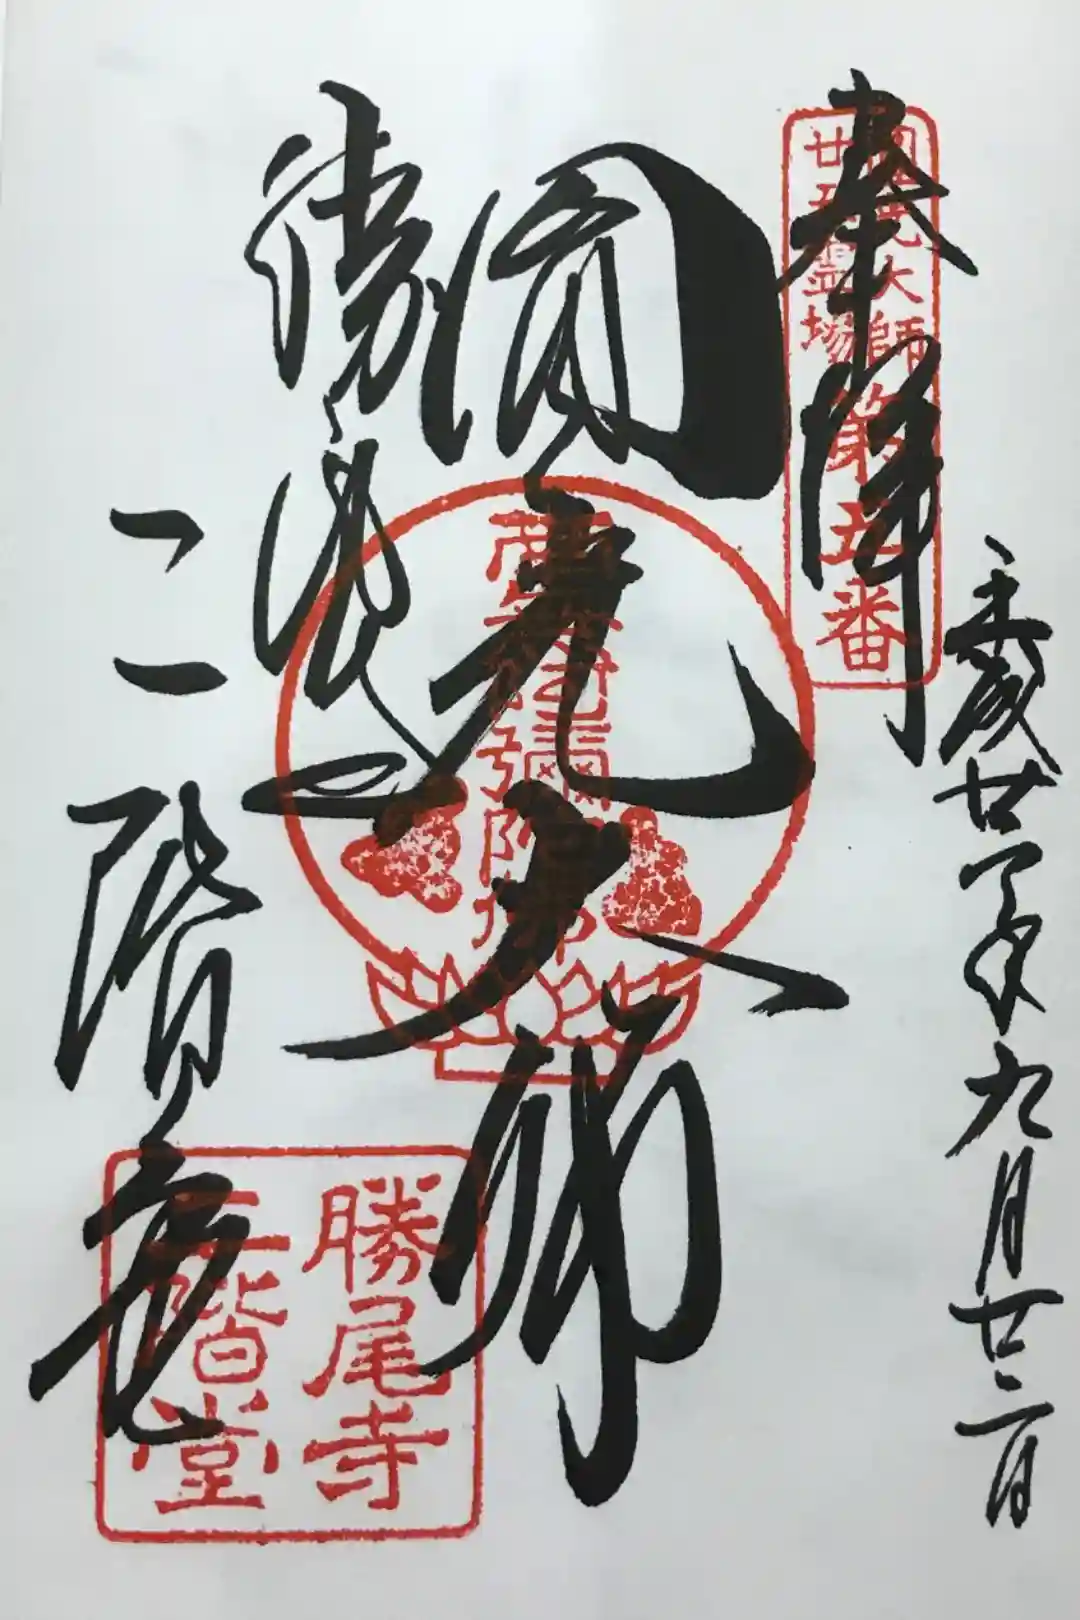 奉拝
圓光大師
廿五霊場
第五番
平成廿年九月廿二日
圓光大師
勝尾寺
二階堂
勝尾寺
二階堂